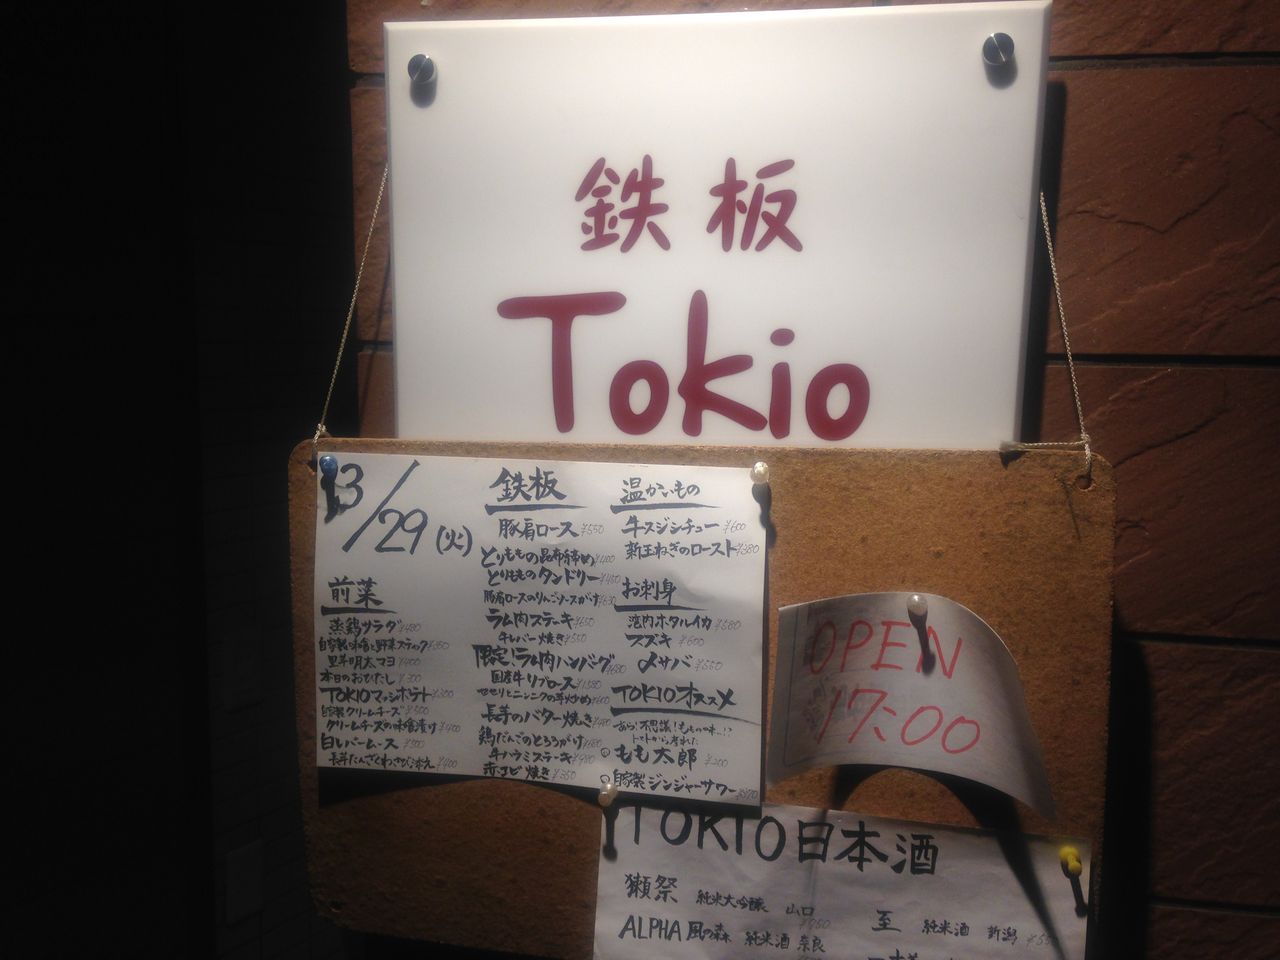 鉄板
Tokio
3/29(火)
前菜
蒸鶏サラダ ¥480
自家製味噌と野菜スティック ¥350
里芋明太マヨ ¥400
本日のおひたし ¥300
TOKIOマッシュポテト ¥300
自家製クリームチーズ ¥300
クリームチーズの味噌漬け ¥400
白レバームース ¥300
長芋たんざくわさび添え ¥400
鉄板
豚肩ロース ¥550
とりももの昆布締め ¥400
とりもものタンドリー ¥450
豚肩ロースのりんごソースがけ
ラム肉ステーキ ¥650
牛レバー焼き ¥550
限定!ラム肉ハンバーグ
国産牛リブロース ¥1380
せせりとニンニクの芽炒め ¥600
長芋のバター焼き
鶏だんごのとろろがけ
牛ハラミステーキ ¥980
赤エビ焼き ¥350
温かいもの
牛スジシチュー ¥600
新玉ねぎのロースト ¥380
お刺身
湾内ホタルイカ ¥580
スズキ ¥600
〆サバ ¥550
TOKIOオススメ
あら!不思議!ももの味…!?
トマトから考れた
もも太郎 ¥200
自家製ジンジャーサワー
OPEN
17:00
TOKIO日本酒
獺祭 純米大吟醸 山口 ¥950
ALPHA 風の森 純米酒 奈良
至 純米酒 新潟